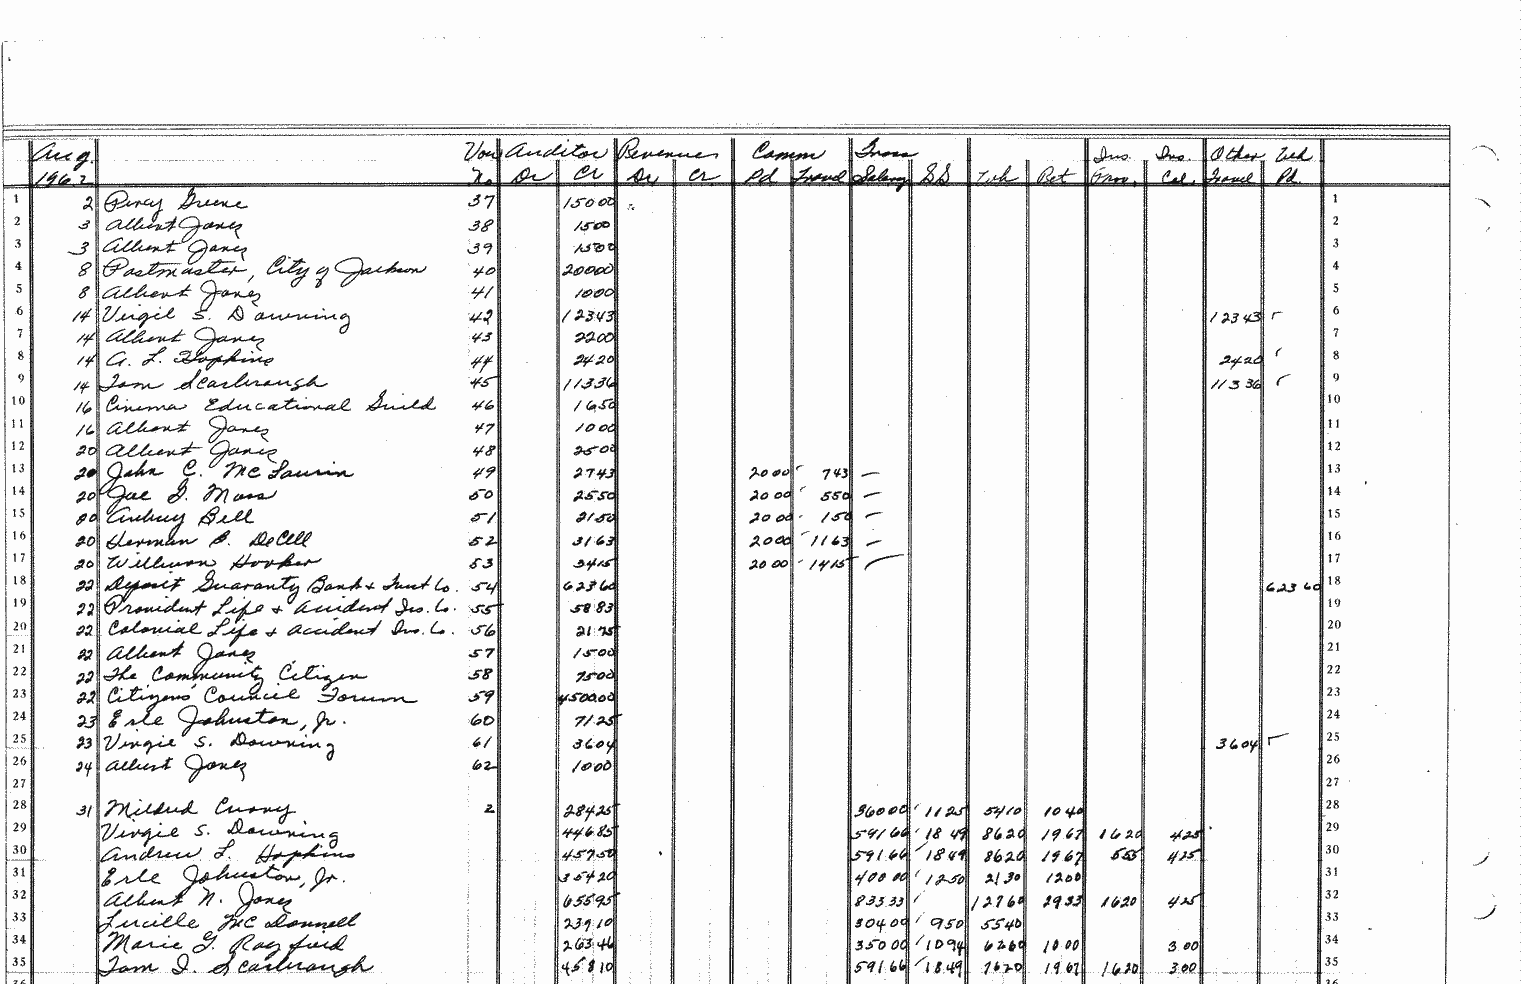 Aug. Vou Auditor Revenues Comm Gross Ins. Ins. Other Wd
1962 No Dr Cr Dr Cr Pd Travel Salary SS Wh Ret Prov. Col. Travel Pd.
1 2 Percy Greene 37 150 00 1
2 3 Albert Jones 38 15 00 2
3 3 Albert Jones 39 15 00 3
4 8 Postmaster, City of Jackson 40 200 00 4
5 8 Albert Jones 41 10 00 5
6 14 Virgil S. Downing 42 123 43 123 43 6
7 14 Albert Jones 43 22 00 7
8 14 A. L. Hopkins 44 24 20 24 20 8
9 14 Tom Scarbrough 45 113 36 113 36 9
10 16 Cinema Educational Guild 46 16 50 10
11 16 Albert Jones 47 10 00 11
12 20 Albert Jones 48 25 00 12
13 20 John C. McLaurin 49 27 43 20 00 7 43 13
14 20 Joe G. Moss 50 25 50 20 00 5 50 14
15 20 Aubrey Bell 51 21 50 20 00 1 50 15
16 20 Herman B. DeCell 52 31 63 20 00 11 63 16
17 20 Wilburn Hooker 53 34 15 20 00 14 15 17
18 22 Deposit Guaranty Bank & Trust Co. 54 623 60 623 60 18
19 22 Provident Life & Accident Ins. Co. 55 58 83 19
20 22 Colonial Life & Accident Ins. Co. 56 21 75 20
21 22 Albert Jones 57 15 00 21
22 22 The Community Citizen 58 75 00 22
23 22 Citizens' Council Forum 59 4500.00 23
24 23 Erle Johnston, Jr. 60 71 25 24
25 23 Virgie S. Downing 61 36 04 36 04 25
26 24 Albert Jones 62 10 00 26
27 27
28 31 Mildred Curry 2 284 25 360 00 11 25 54 10 10 40 28
29 Virgie S. Downing 446 85 591 66 18 49 86 20 19 67 16 20 4 25 29
30 Andrew L. Hopkins 457 50 591 66 18 49 86 20 19 67 5 55 4 25 30
31 Erle Johnston, Jr. 354 20 400 00 12 50 21 30 12 00 31
32 Albert N. Jones 655 95 833 33 127 60 29 33 16 20 4 25 32
33 Lucille McDonnell 239 10 304 00 9 50 55 40 33
34 Marie G. Rayford 263 46 350 00 10 94 62 60 10 00 3.00 34
35 Tom I. Scarbrough 458 10 591 66 18 49 76 20 19 67 16 20 3 00 35